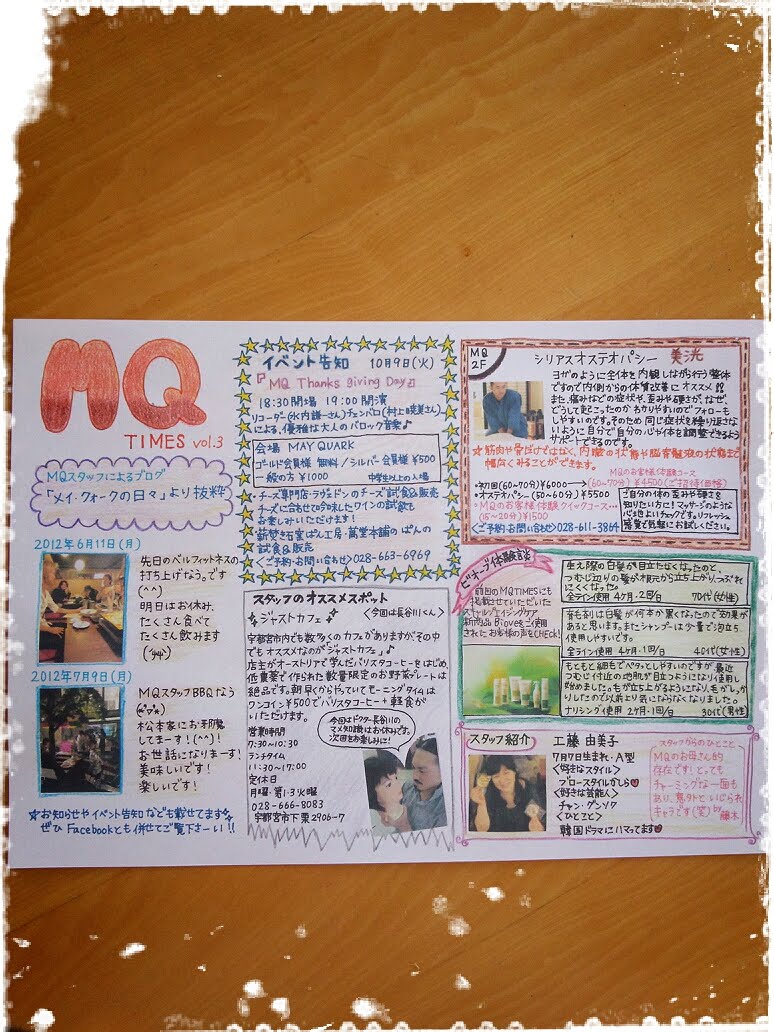 MQ
TIMES vol.3
MQスタッフによるブログ
「メイ・クォークの日々」より抜粋
2012年6月11日(月)
先日のベルフィットネスの
打ち上げなう。です
(^^)
明日はお休み、
たくさん食べて
たくさん飲みます
2012年7月9日(月)
MQスタッフBBQなう
松本家にお邪魔
してまーす!(^^)!
お世話になりまーす!
美味しいです!
楽しいです!
☆お知らせやイベント告知なども載せてます
ぜひFacebookとも併せてご覧下さーい!!
イベント告知 10月9日(火)
『MQ Thanks Giving Day』
18:30開場 19:00開演
リコーダー(水内謙一さん)チェンバロ(村上暁美さん)
による、優雅な大人のバロック音楽♪
会場 MAY QUARK
ゴールド会員様 無料/シルバー会員様 ¥500
一般の方 ¥1000 中学生以上の入場
・チーズ専門店・ラ・ヴェドンのチーズ試食&販売
チーズに合わせてワインの試飲で
お楽しみいただけます!
・薪焚き石窯ぱん工房・萬堂本舗のぱんの
試食&販売
<ご予約・お問い合わせ>028-663-6969
スタッフのオススメスポット
ジャストカフェ <今回は長谷川くん>
宇都宮市内でも数多くのカフェがありますがその中
でもオススメなのが「ジャストカフェ」♪
店主がオーストリアで学んだバリスタコーヒーをはじめ、
低農薬で作られた数量限定のお野菜プレートは
絶品です。朝早くからやっていてモーニングタイムは
ワンコイン¥500でバリスタコーヒー+軽食が
いただけます。
営業時間
7:30~10:30
ランチタイム
11:30~17:00
定休日
月曜・第1・3火曜
028-666-8083
宇都宮市下栗2906-7
今回はドクター長谷川の
マメ知識はお休みです。
次回をお楽しみに!
MQ
2F
シリアスオステオパシー 美洸
ヨガのように全体を内観しながら行う整体
ですので内側からの体質改善にオススメ!!
また、痛みなどの症状や、歪みや硬さが、なぜ、
どうして起こったのかわかりやすいのでフォローも
しやすいのです。そのため同じ症状を繰り返さな
いように自分で自分の心や体を調整できるよう
サポートできるのです。
☆筋肉や骨だけではなく、内臓の状態や脳脊髄液の状態まで
幅広くみることができます。
MQのお客様体験コース
・初回(60~70分)¥6000→(60~70分)¥4500(ご招待価格)
・オステオパシー(50~60分)¥5500
・MQのお客様体験クイックコース…
(15~20分)¥1500
<ご予約・お問い合わせ>028-611-3864
ご自分の体の歪みや硬さを
知りたい方に!マッサージのような
心地よいチェックです。リフレッシュ
感覚で気軽にお試しください。
ビオーブ体験談
前回のMQTIMESにも
掲載させていただいた
スキャルプエイジングケア
新商品Bioveをご使用
されたお客様の声をCHECK!
生え際の白髪が目立たなくなったのと、
つむじ辺りの髪が根元から立ち上がりつぶれ
にくくなった。
全ライン使用 4ヶ月・2回/日 70代(女性)
育毛剤は白髪が何本か黒くなったので効果
があると思います。またシャンプーは少量で泡立ち
使用しやすいです。
全ライン使用 4ヶ月・1回/日 40代(女性)
もともと細毛でペタッとしやすいのですが最近
つむじ付近の地肌が目立つようになり使用し
始めました。毛が立ち上がるようになり、毛がしっか
りしたので以前より気にならなくなりました。
ナリシング使用 2ヶ月・1回/日 30代(男性)
スタッフ紹介
工藤 由美子
7月7日生まれ・A型
<好きなスタイル>
ブロースタイルかしら♥
<好きな芸能人>
チャン・グンソク
<ひとこと>
韓国ドラマにハマってます♥
スタッフからのひとこと
MQのお母さん的
存在です!とっても
チャーミングな一面も
あり、意外といじられ
キャラです(笑)by